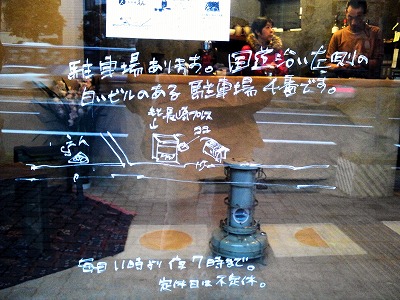 駐車場あります。国道沿い左回りの
白いビルのある駐車場 4番です。
長崎プレス
ココ
毎日 11時から 夜 7時まで。
定休日は不定休。